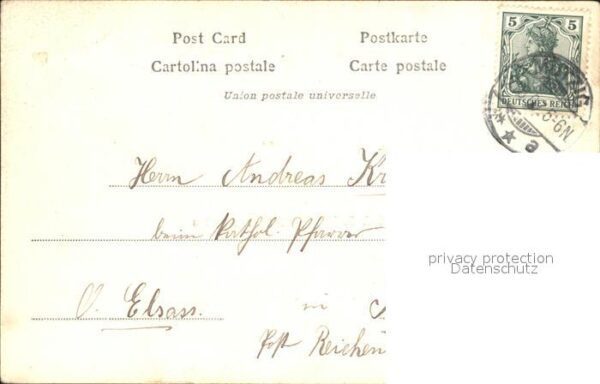 Post Card Postkarte
Cartolina postale Carte postale
Union postale universelle
5 5
DEUTSCHES REICH
5-6N
** a
Herrn Andreas Kr
beim Kathol. Pfarrer
privacy protection
Datenschutz
O. Elsass. in
Post Reichen